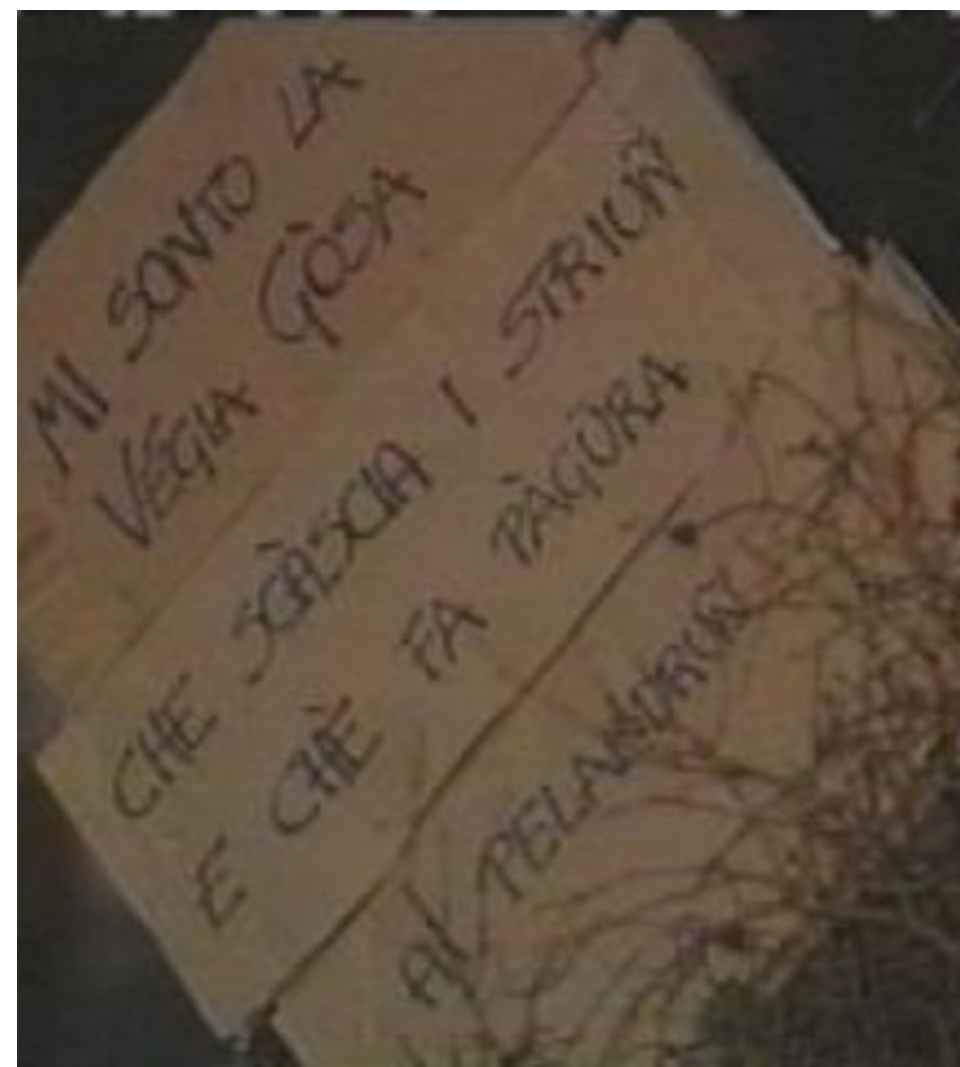 MI SONTO LA
VEGIA GÒSA
CHE SCÀSCIA I STRIÒŸ
E CHÈ FA PÀGÜRA
AI PELANDRÒŸ